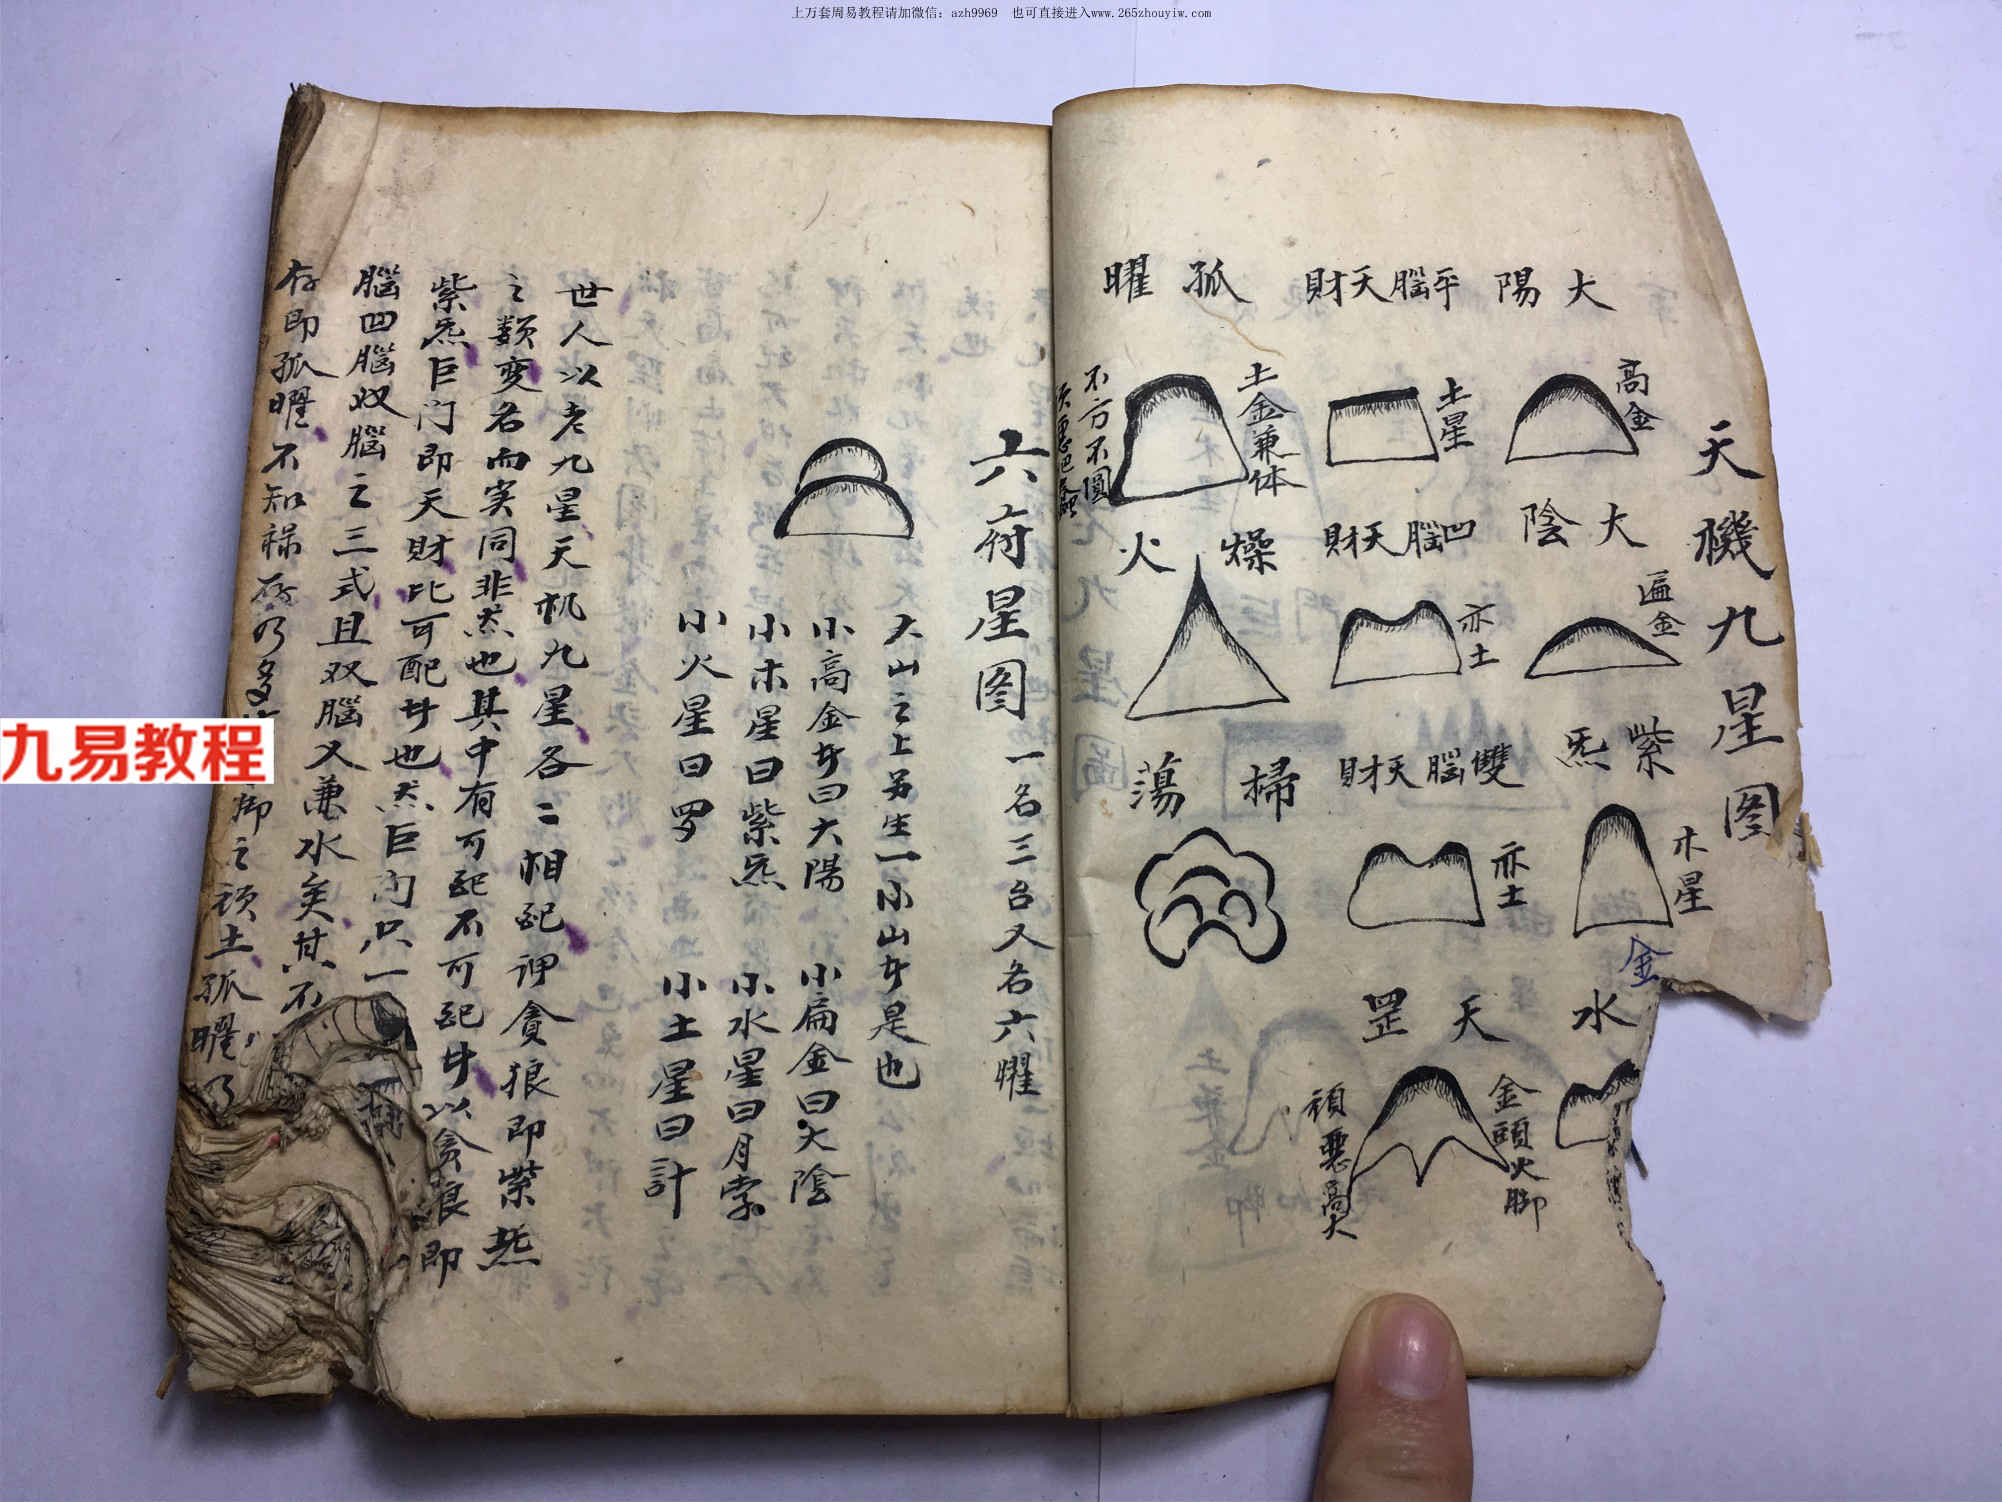 上万套周易教程请加微信：azh9969　也可直接进入www.265zhouyiw.com
九易教程
天機九星图
大陽
高金
平腦天財
土星
孤曜
土金兼体
不方不圓
大陰
遍金
凹腦天財
亦土
燥火
紫炁
木星
雙腦天財
亦土
掃蕩
金
水
天罡
金頭火脚
頑惡高大
六府星图
一名三台又名六曜
大山之上另生一小山者是也
小高金者曰大陽
小扁金曰大陰
小木星曰紫炁
小水星曰月孛
小火星曰罗
小土星曰計
世人以老九星天机九星各二相配谓貪狼即紫炁
之類变名而实同非炁也其中有可配不可配者以贪狼即
紫炁巨门即天財比可配者也炁巨门只一
腦凹腦双腦之三式且双腦又兼水矣其不
存即孤曜不知祿存乃多
脚之頑土孤曜乃